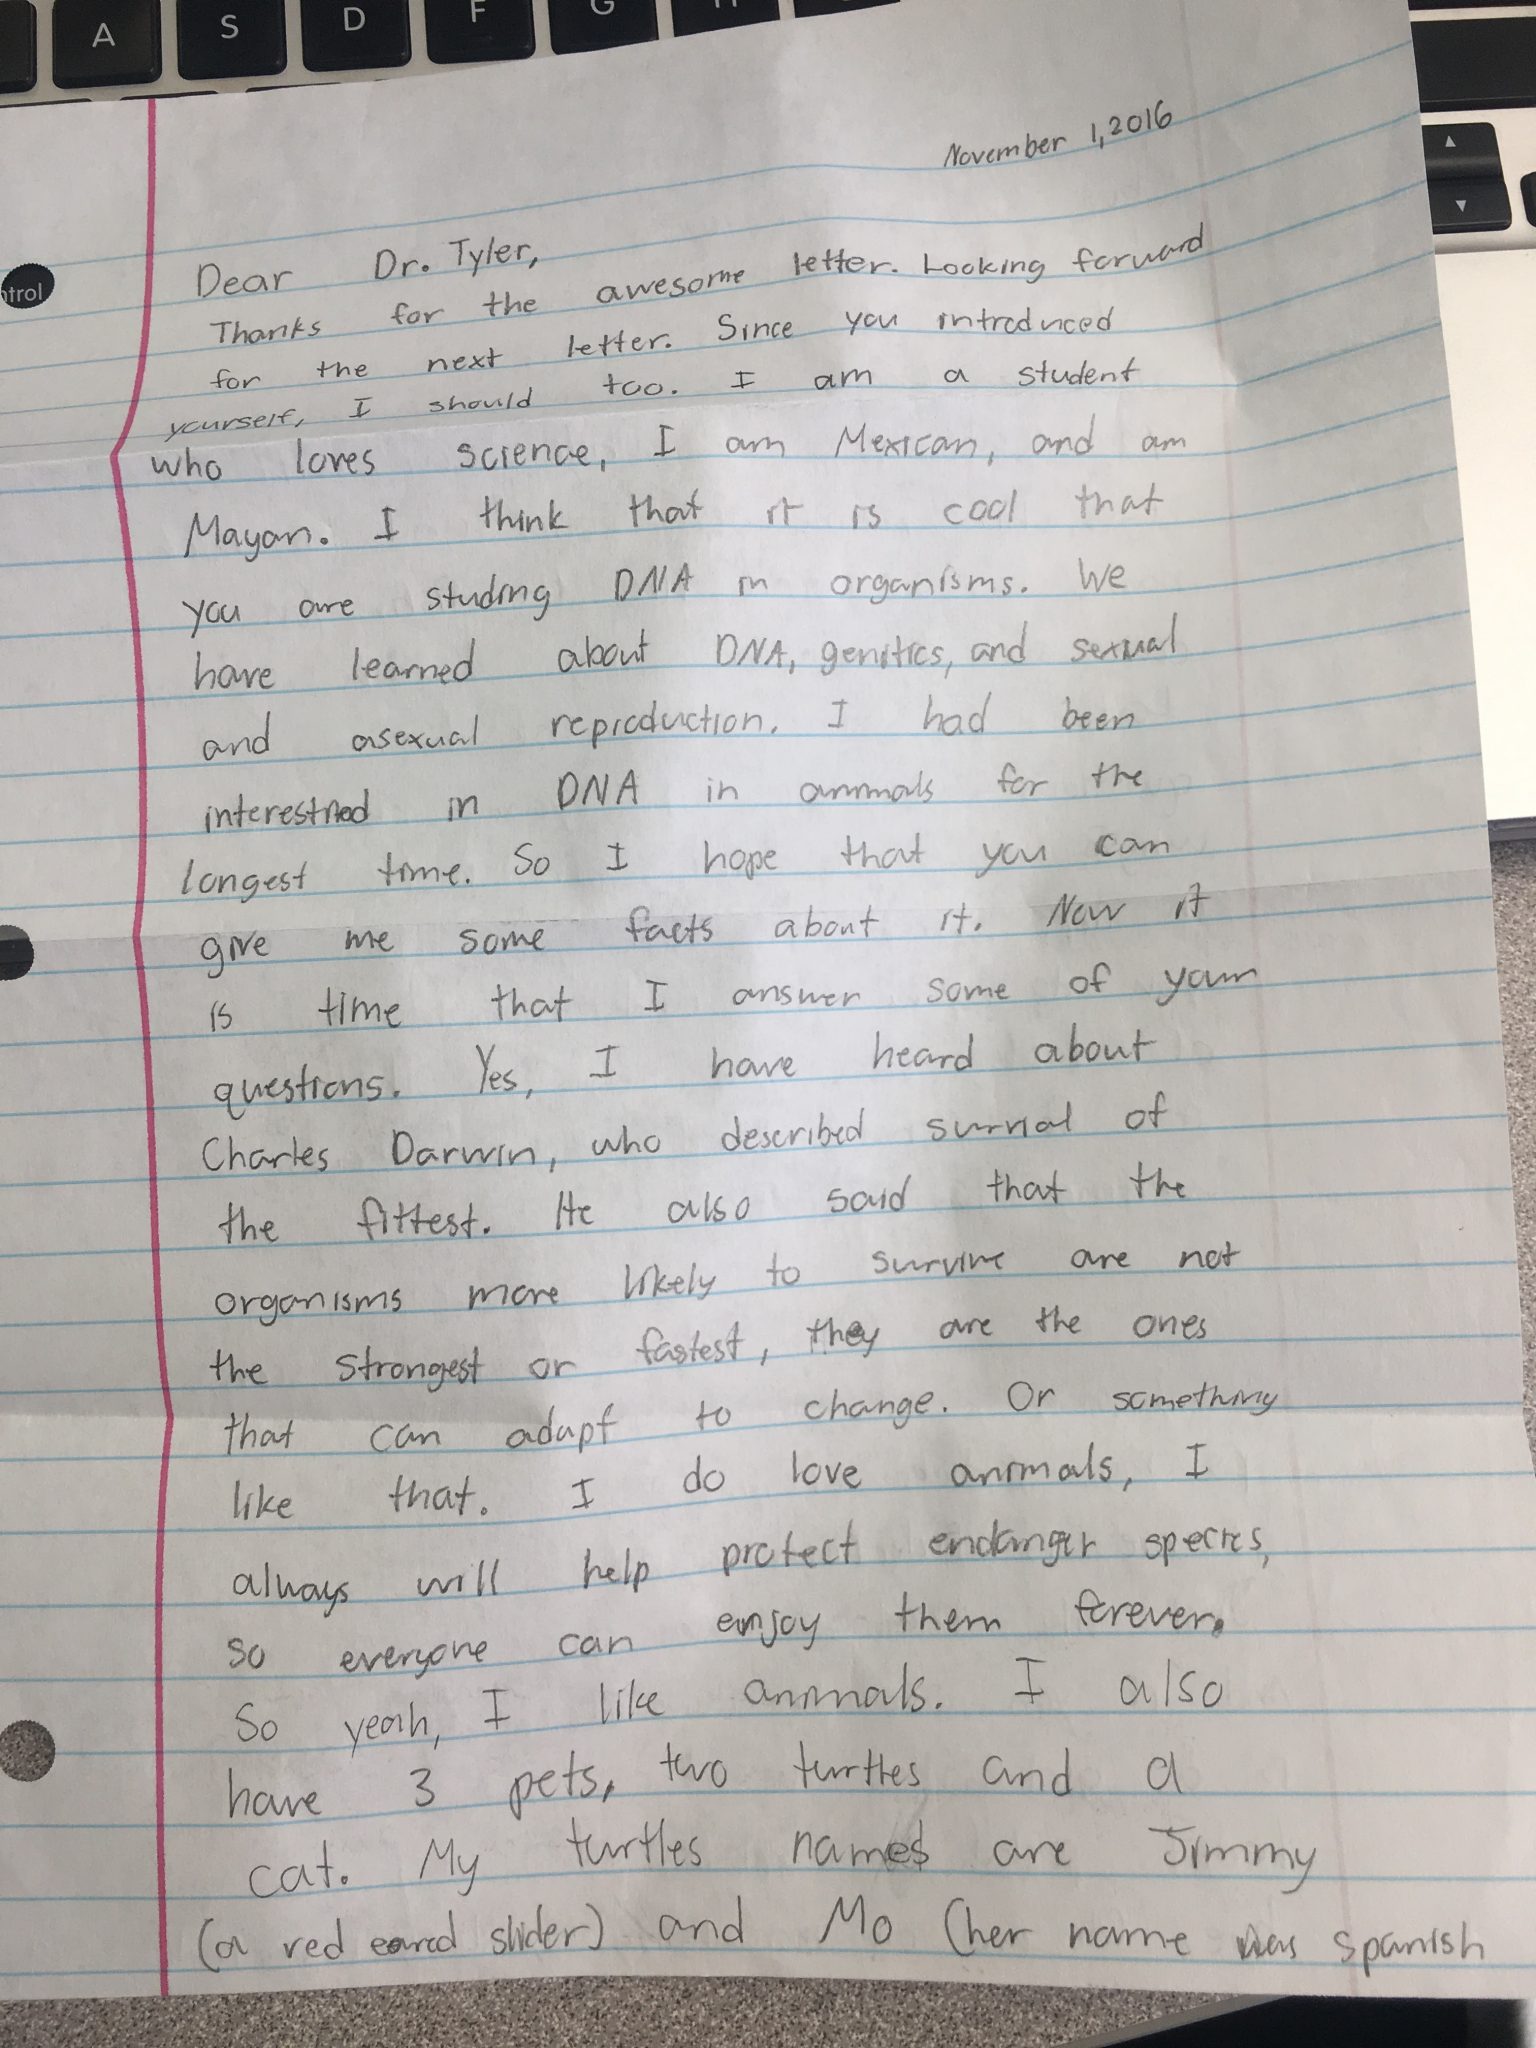 A S D F G H
ntrol
November 1, 2016
Dear Dr. Tyler,
Thanks for the awesome letter. Looking forward
for the next letter. Since you introduced
yourself, I should too. I am a student
who loves science, I am Mexican, and am
Mayan. I think that it is cool that
you are studing DNA in organisms. We
have learned about DNA, genitics, and sexual
and asexual reproduction. I had been
in DNA in animals for the
longest time. So I hope that you can
give me some facts about it. Now it
is time that I answer some of your
questions. Yes, I have heard about
Charles Darwin, who described survial of
the fittest. He also said that the
organisms more likely to survive are not
the strongest or fastest, they are the ones
that can adapt to change. Or something
like that. I do love animals, I
always will help protect endanger species,
so everyone can enjoy them forever.
So yeah, I like animals. I also
have 3 pets, two turtles and a
cat. My turtles names are Jimmy
(a red eared slider) and Mo (her name was spanish